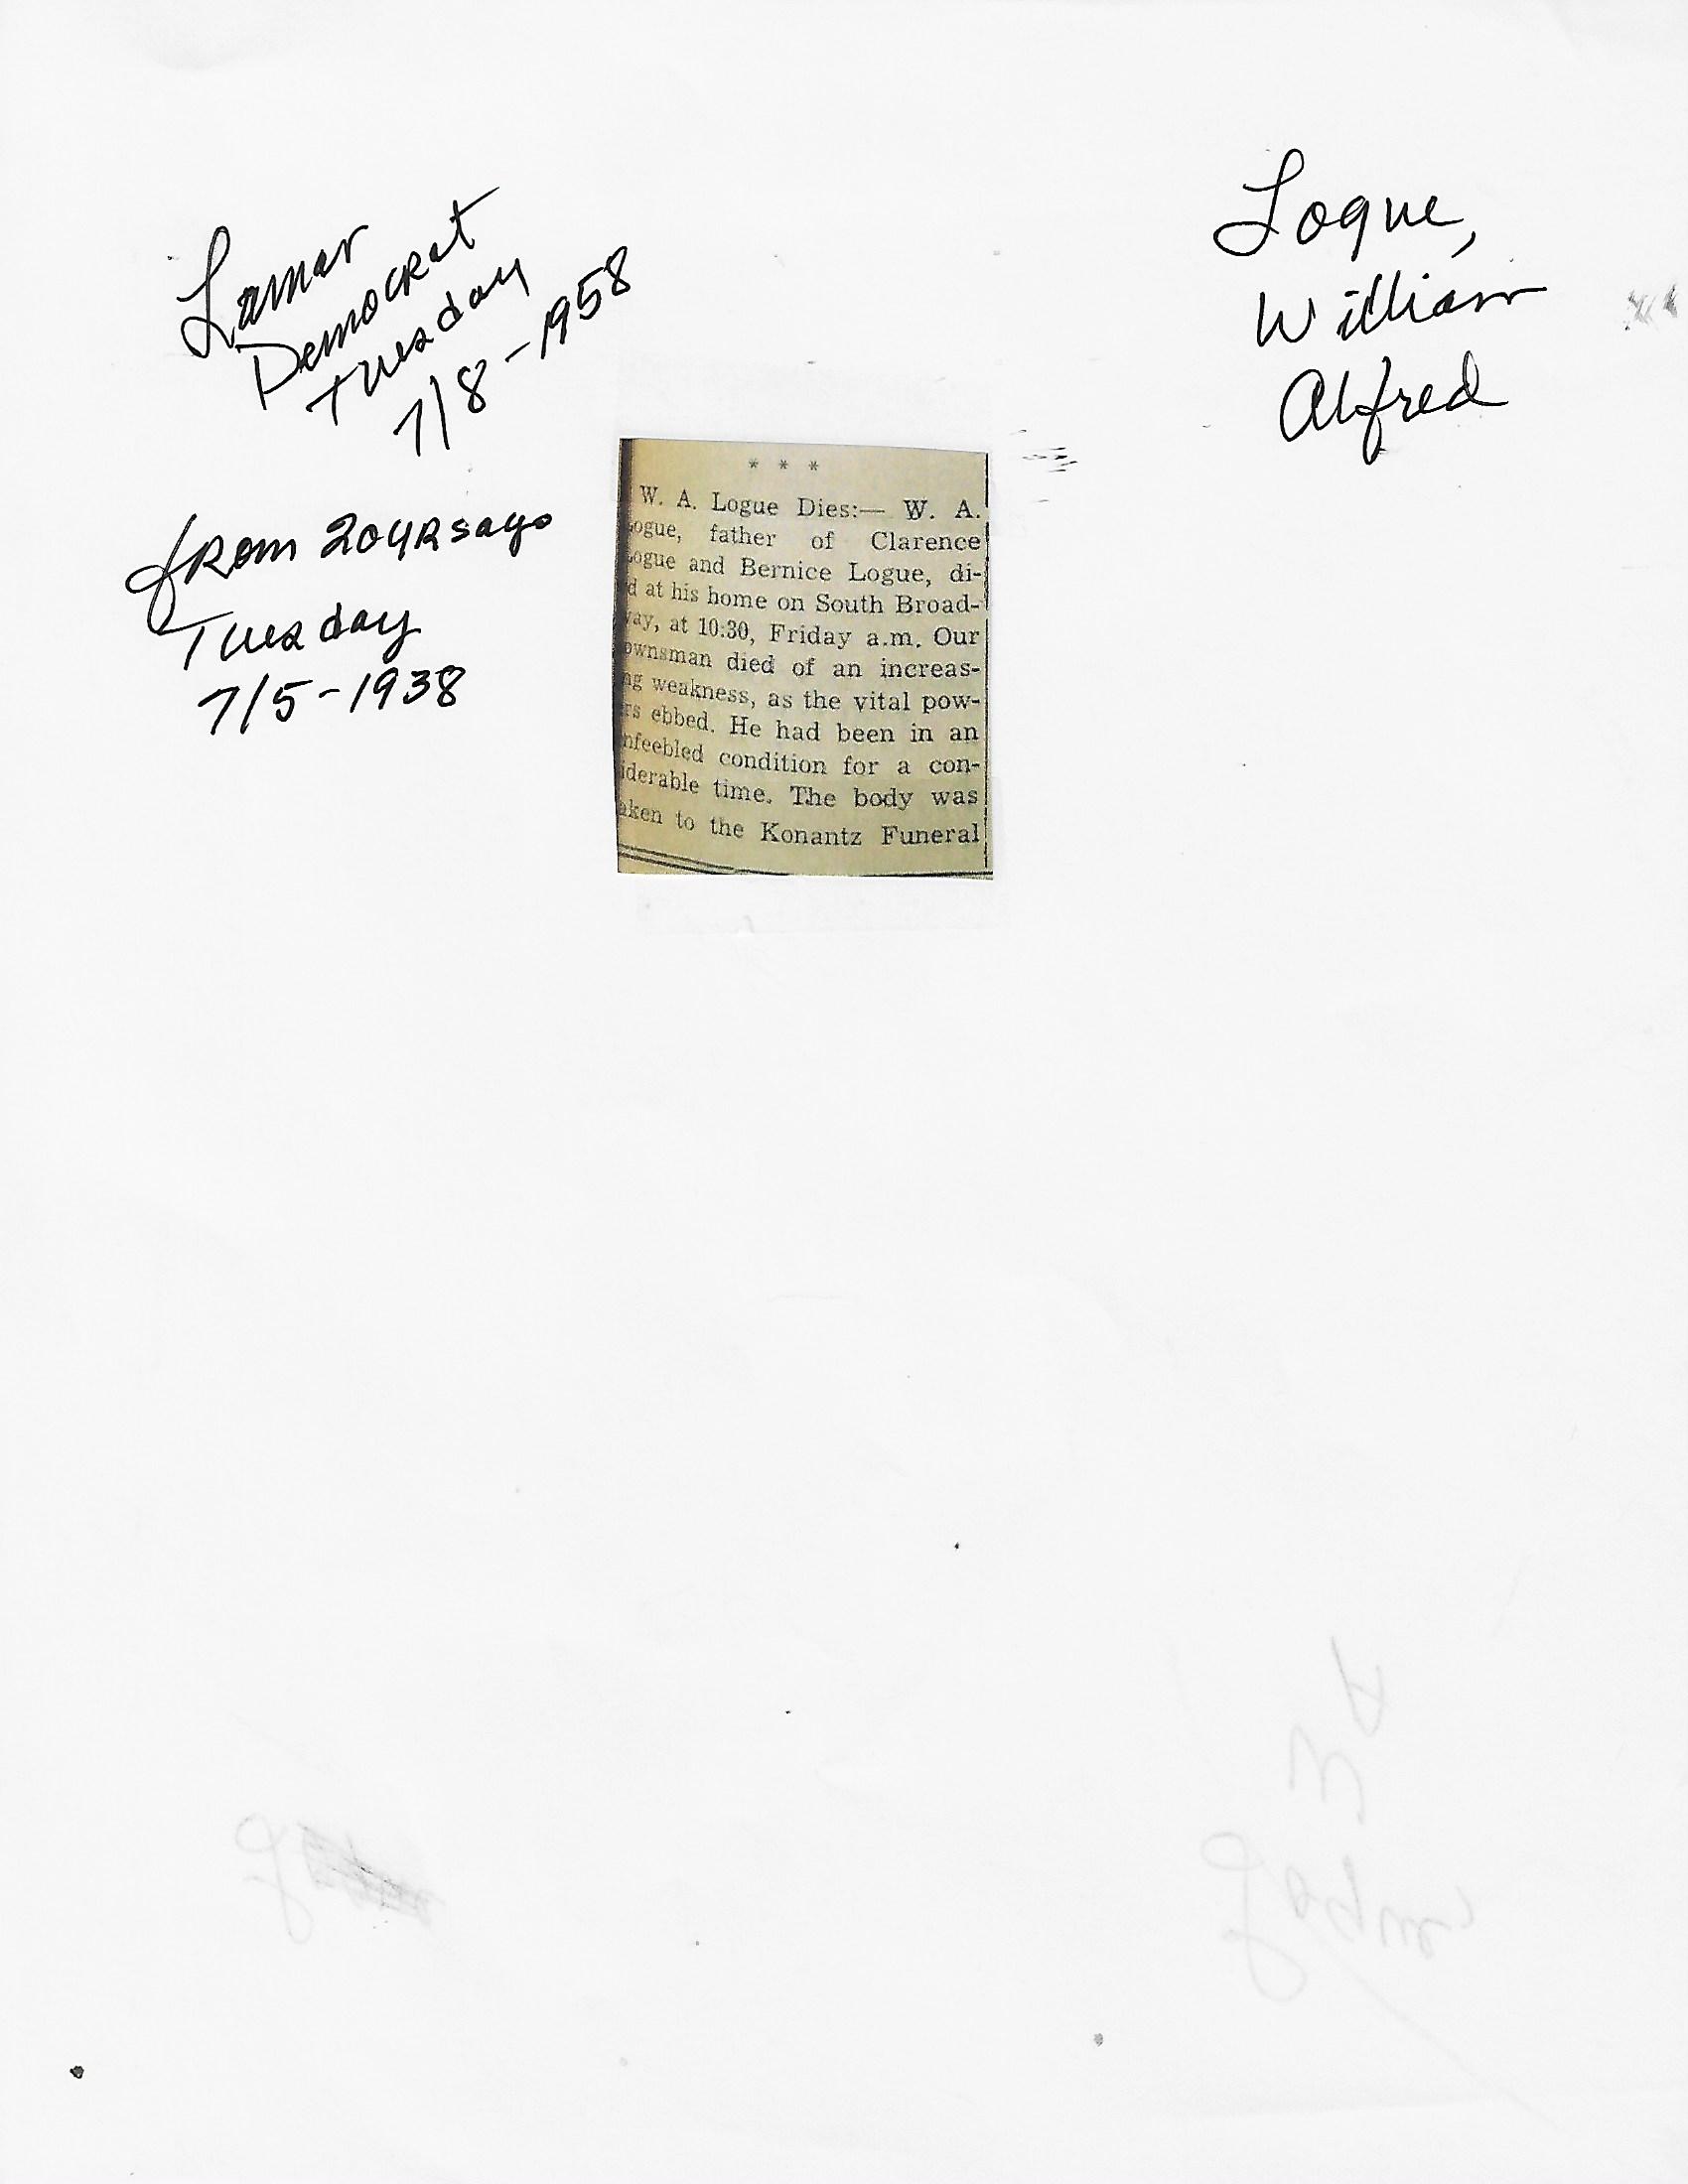 Lamar
Democrat
Tuesday
7/8-1958
Logue,
William
Alfred
from 20yrsago
Tuesday
7/5-1938
* * *
W. A. Logue Dies:— W. A.
ogue, father of Clarence
ogue and Bernice Logue, di-
d at his home on South Broad-
way, at 10:30, Friday a.m. Our
ownsman died of an increas-
ng weakness, as the vital pow-
rs ebbed. He had been in an
nfeebled condition for a con-
iderable time. The body was
aken to the Konantz Funeral